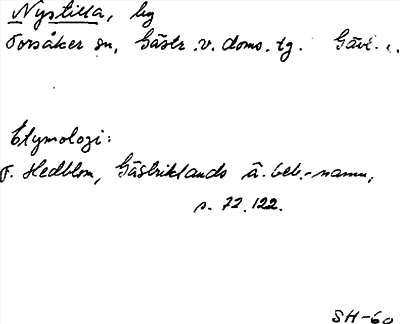 Nystilla, bg
Torsåker sn, Gästr. v. doms. tg. Gävl. l.
Etymologi:
F. Hedblom, Gästriklands ä. beb.-namn,
s. 72. 122.
SH-60